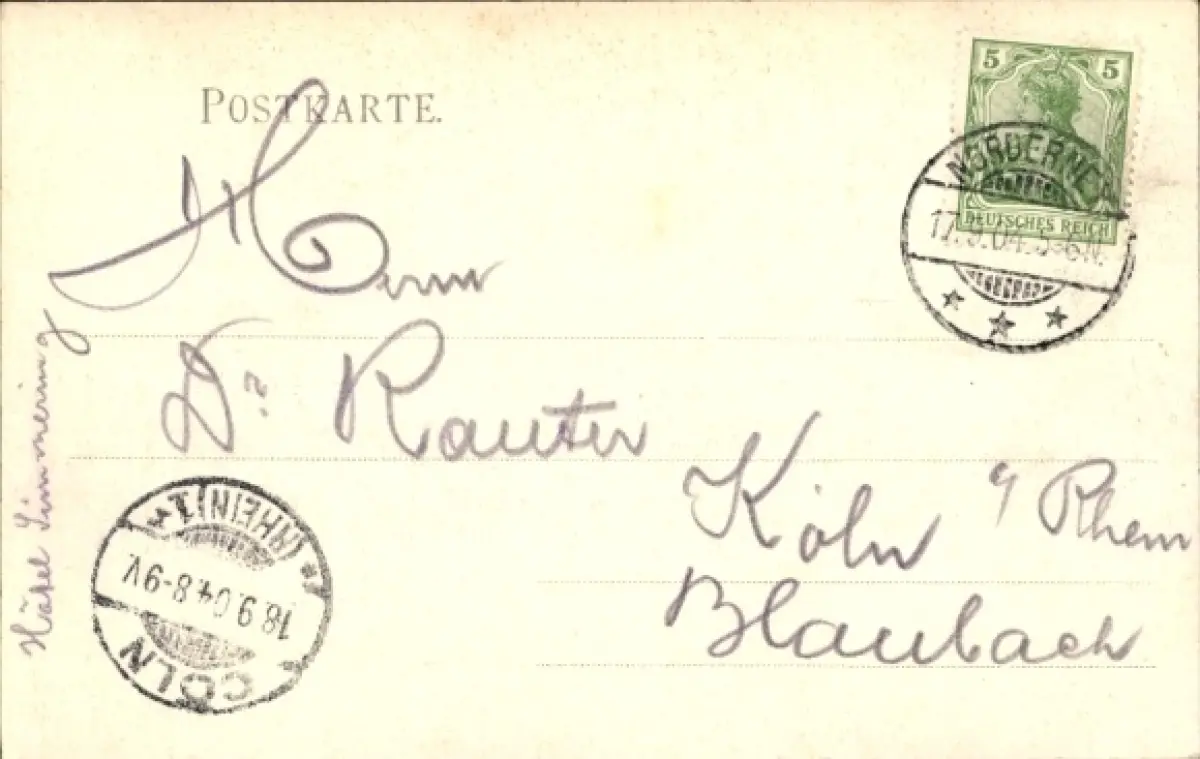 POSTKARTE.
5 5
DEUTSCHES REICH
NORDERNEY
17.9.04.5-6N.
Herrn
Dr Rauter
Köln a/ Rhein
Blaubach
(RHEIN) 1
18.9.04.8-9V.
CÖLN